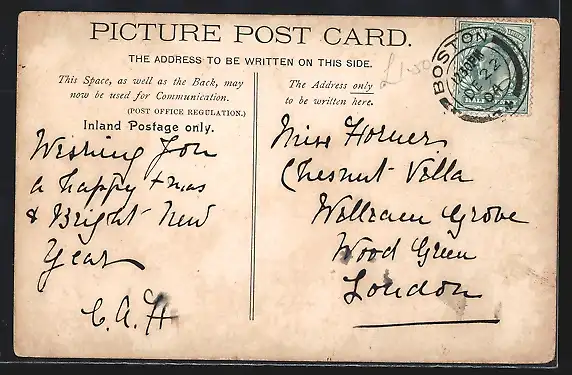 PICTURE POST CARD.
THE ADDRESS TO BE WRITTEN ON THIS SIDE.
This Space, as well as the Back, may
now be used for Communication.
(POST OFFICE REGULATION.)
Inland Postage only.
The Address only
to be written here.
£1-50
BOSTON
12.30PM
DE 22
04
HALF
Wishing You
a happy Xmas
& Bright New
Year
C. A. H
Miss Horner
Chesnut Villa
William Grove
Wood Green
London